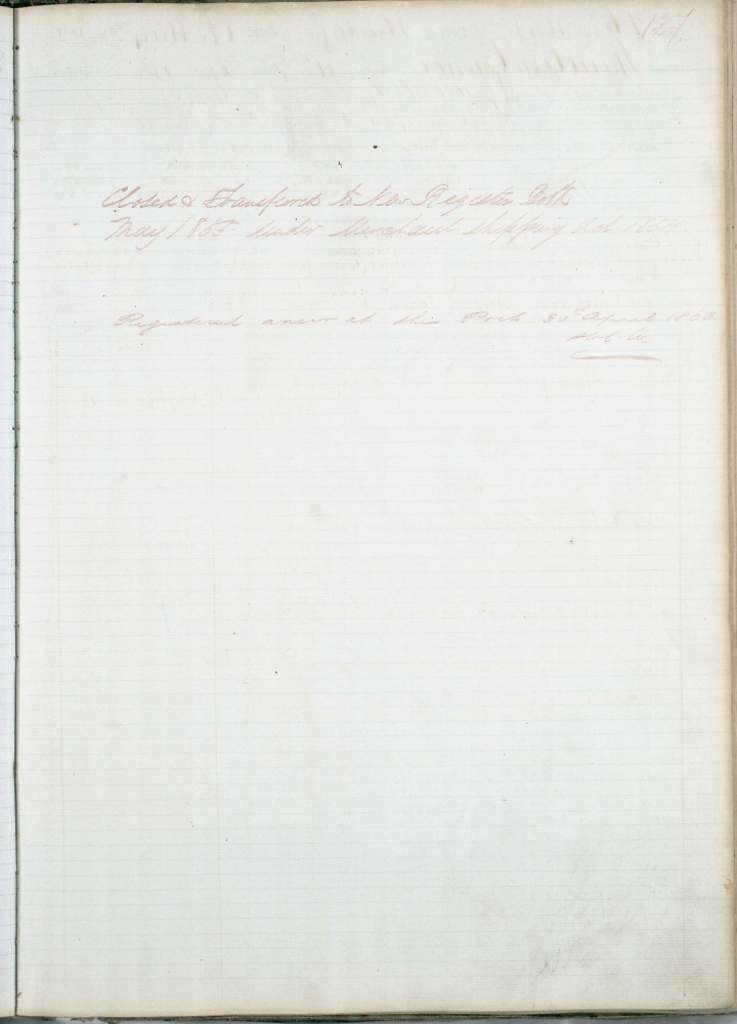 127
Closed & Transferred to New Register Book
May 1855 under Merchant Shipping Act
Registered anew at this Port 30th April